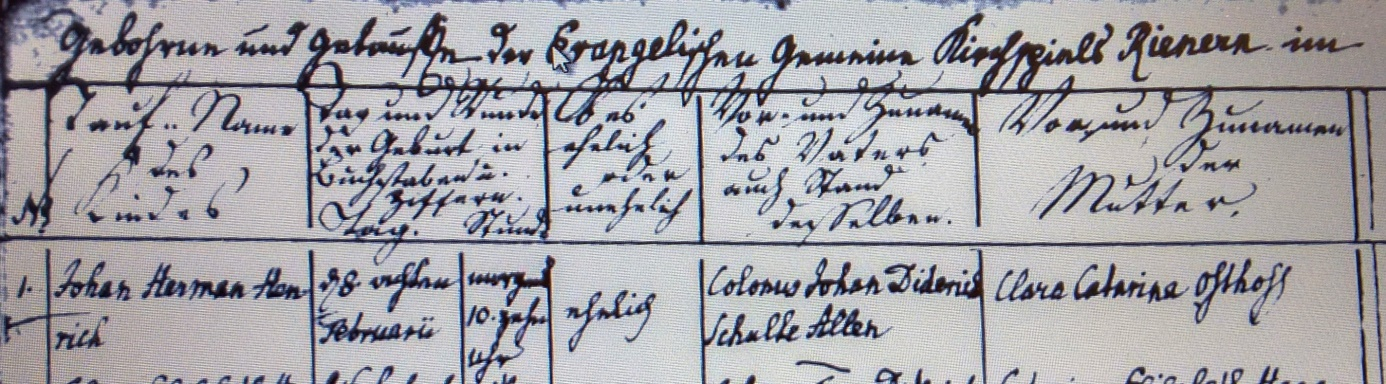 Gebohrne und Getaufte der Evangelischen Gemeine Kirchspiels Rienern im
No
Tauf-Name
des
Kindes
Tag und Stunde
der Geburt in
Buchstaben u.
Ziffern.
Tag. Stunde
Ob es
ehelich
oder
unehelich
Vor- und Zuname
des Vaters
auch Stand
desselben.
Vor- und Zunamen
der
Mutter.
1.
Johan Herman Hen
rich
d 8. achten
Februarii
morgens
10. zehn
uhr
ehelich
Colonus Johan Diderich
Schulle Allen
Clara Catarina Osthoff